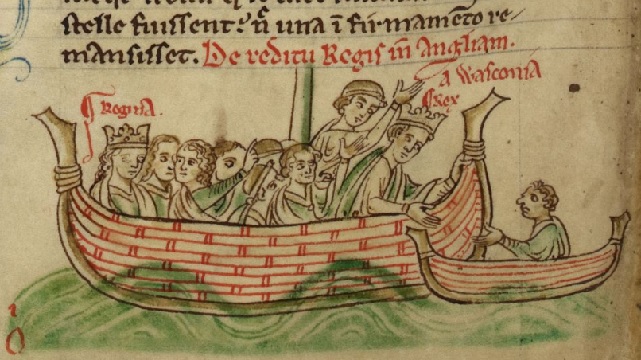 stelle fuissent: nͨ una ī firmamēto re-
mansisset. De reditu Regis in Angliam.
a Wasconia
¶ Regina.
¶ Rex